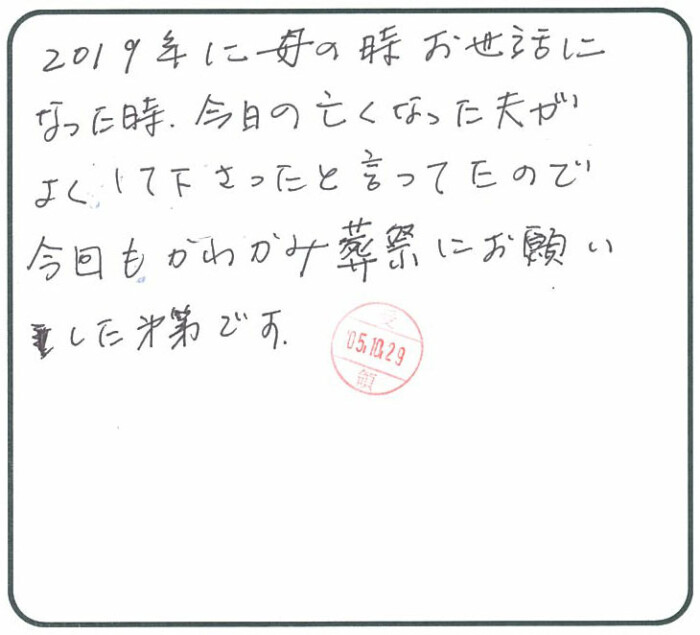 2019年に母の時お世話に
なった時、今日の亡くなった夫が
よくして下さったと言ってたので
今回もかわかみ葬祭にお願い
した次第です.
受
'05.10.29
領